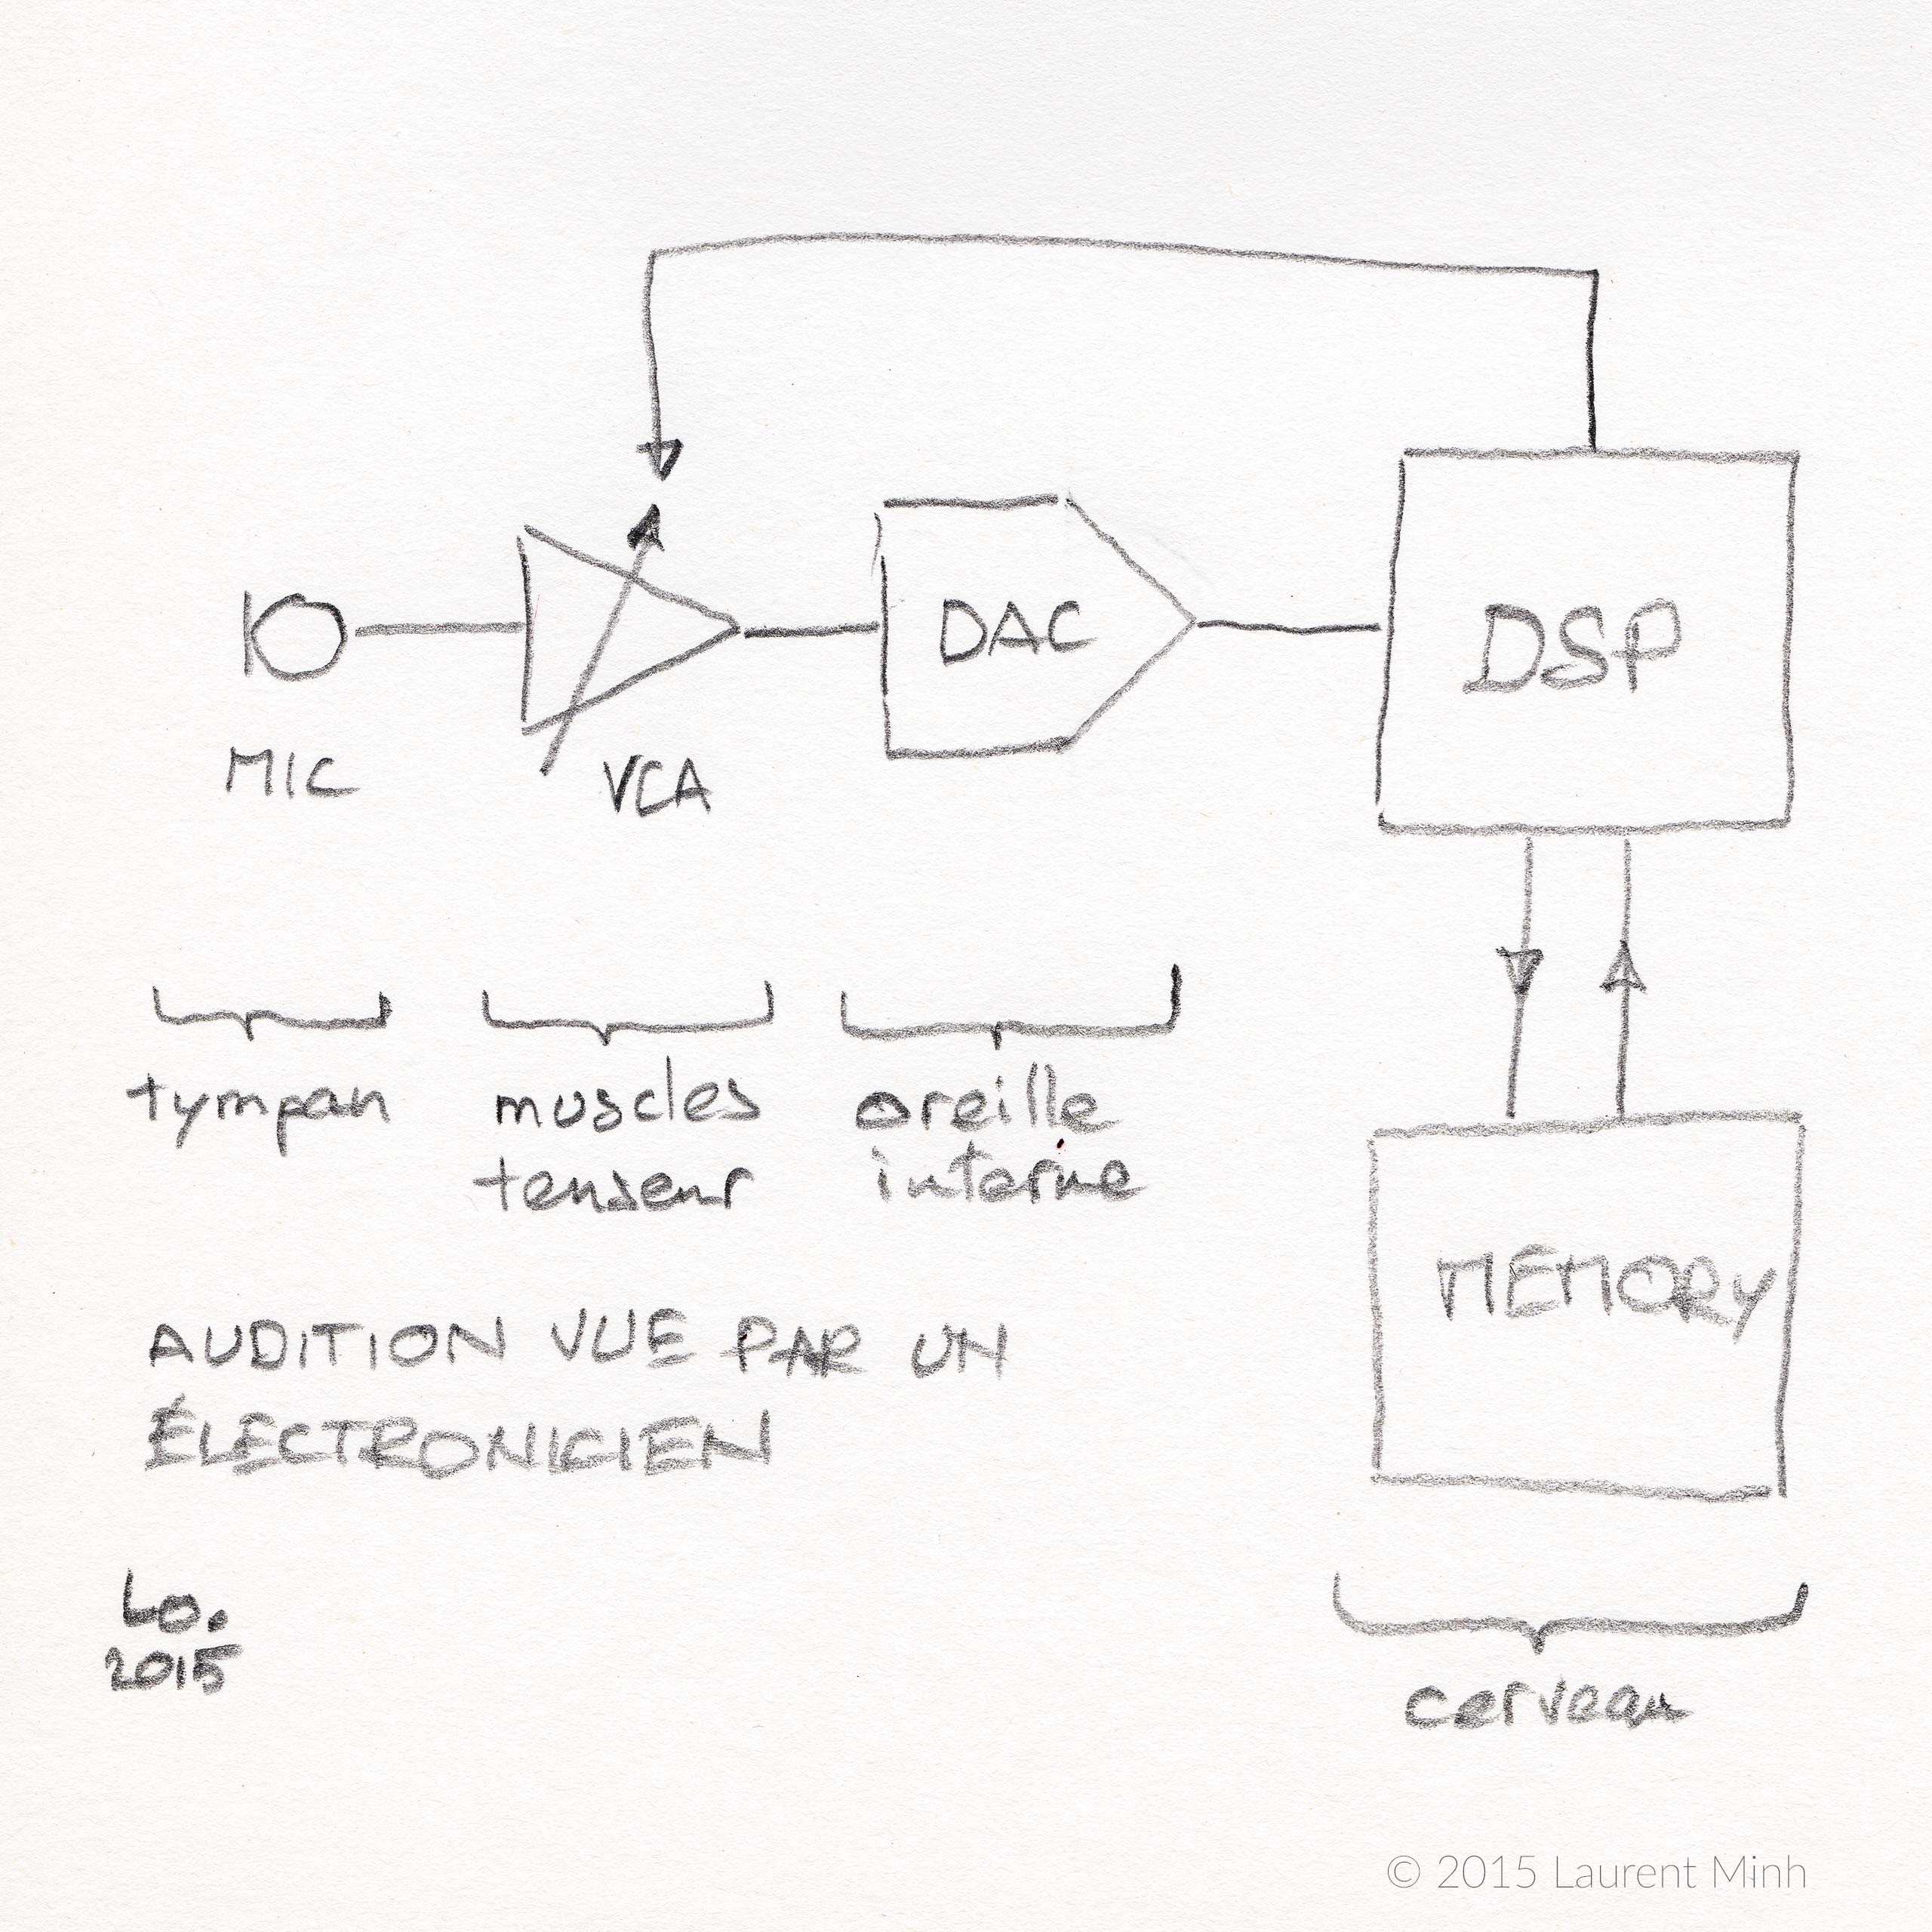 MIC
VCA
DAC
DSP
MEMORY
tympan
muscles
tenseur
oreille
interne
cerveau
AUDITION VUE PAR UN
ÉLECTRONICIEN
Lo.
2015
© 2015 Laurent Minh